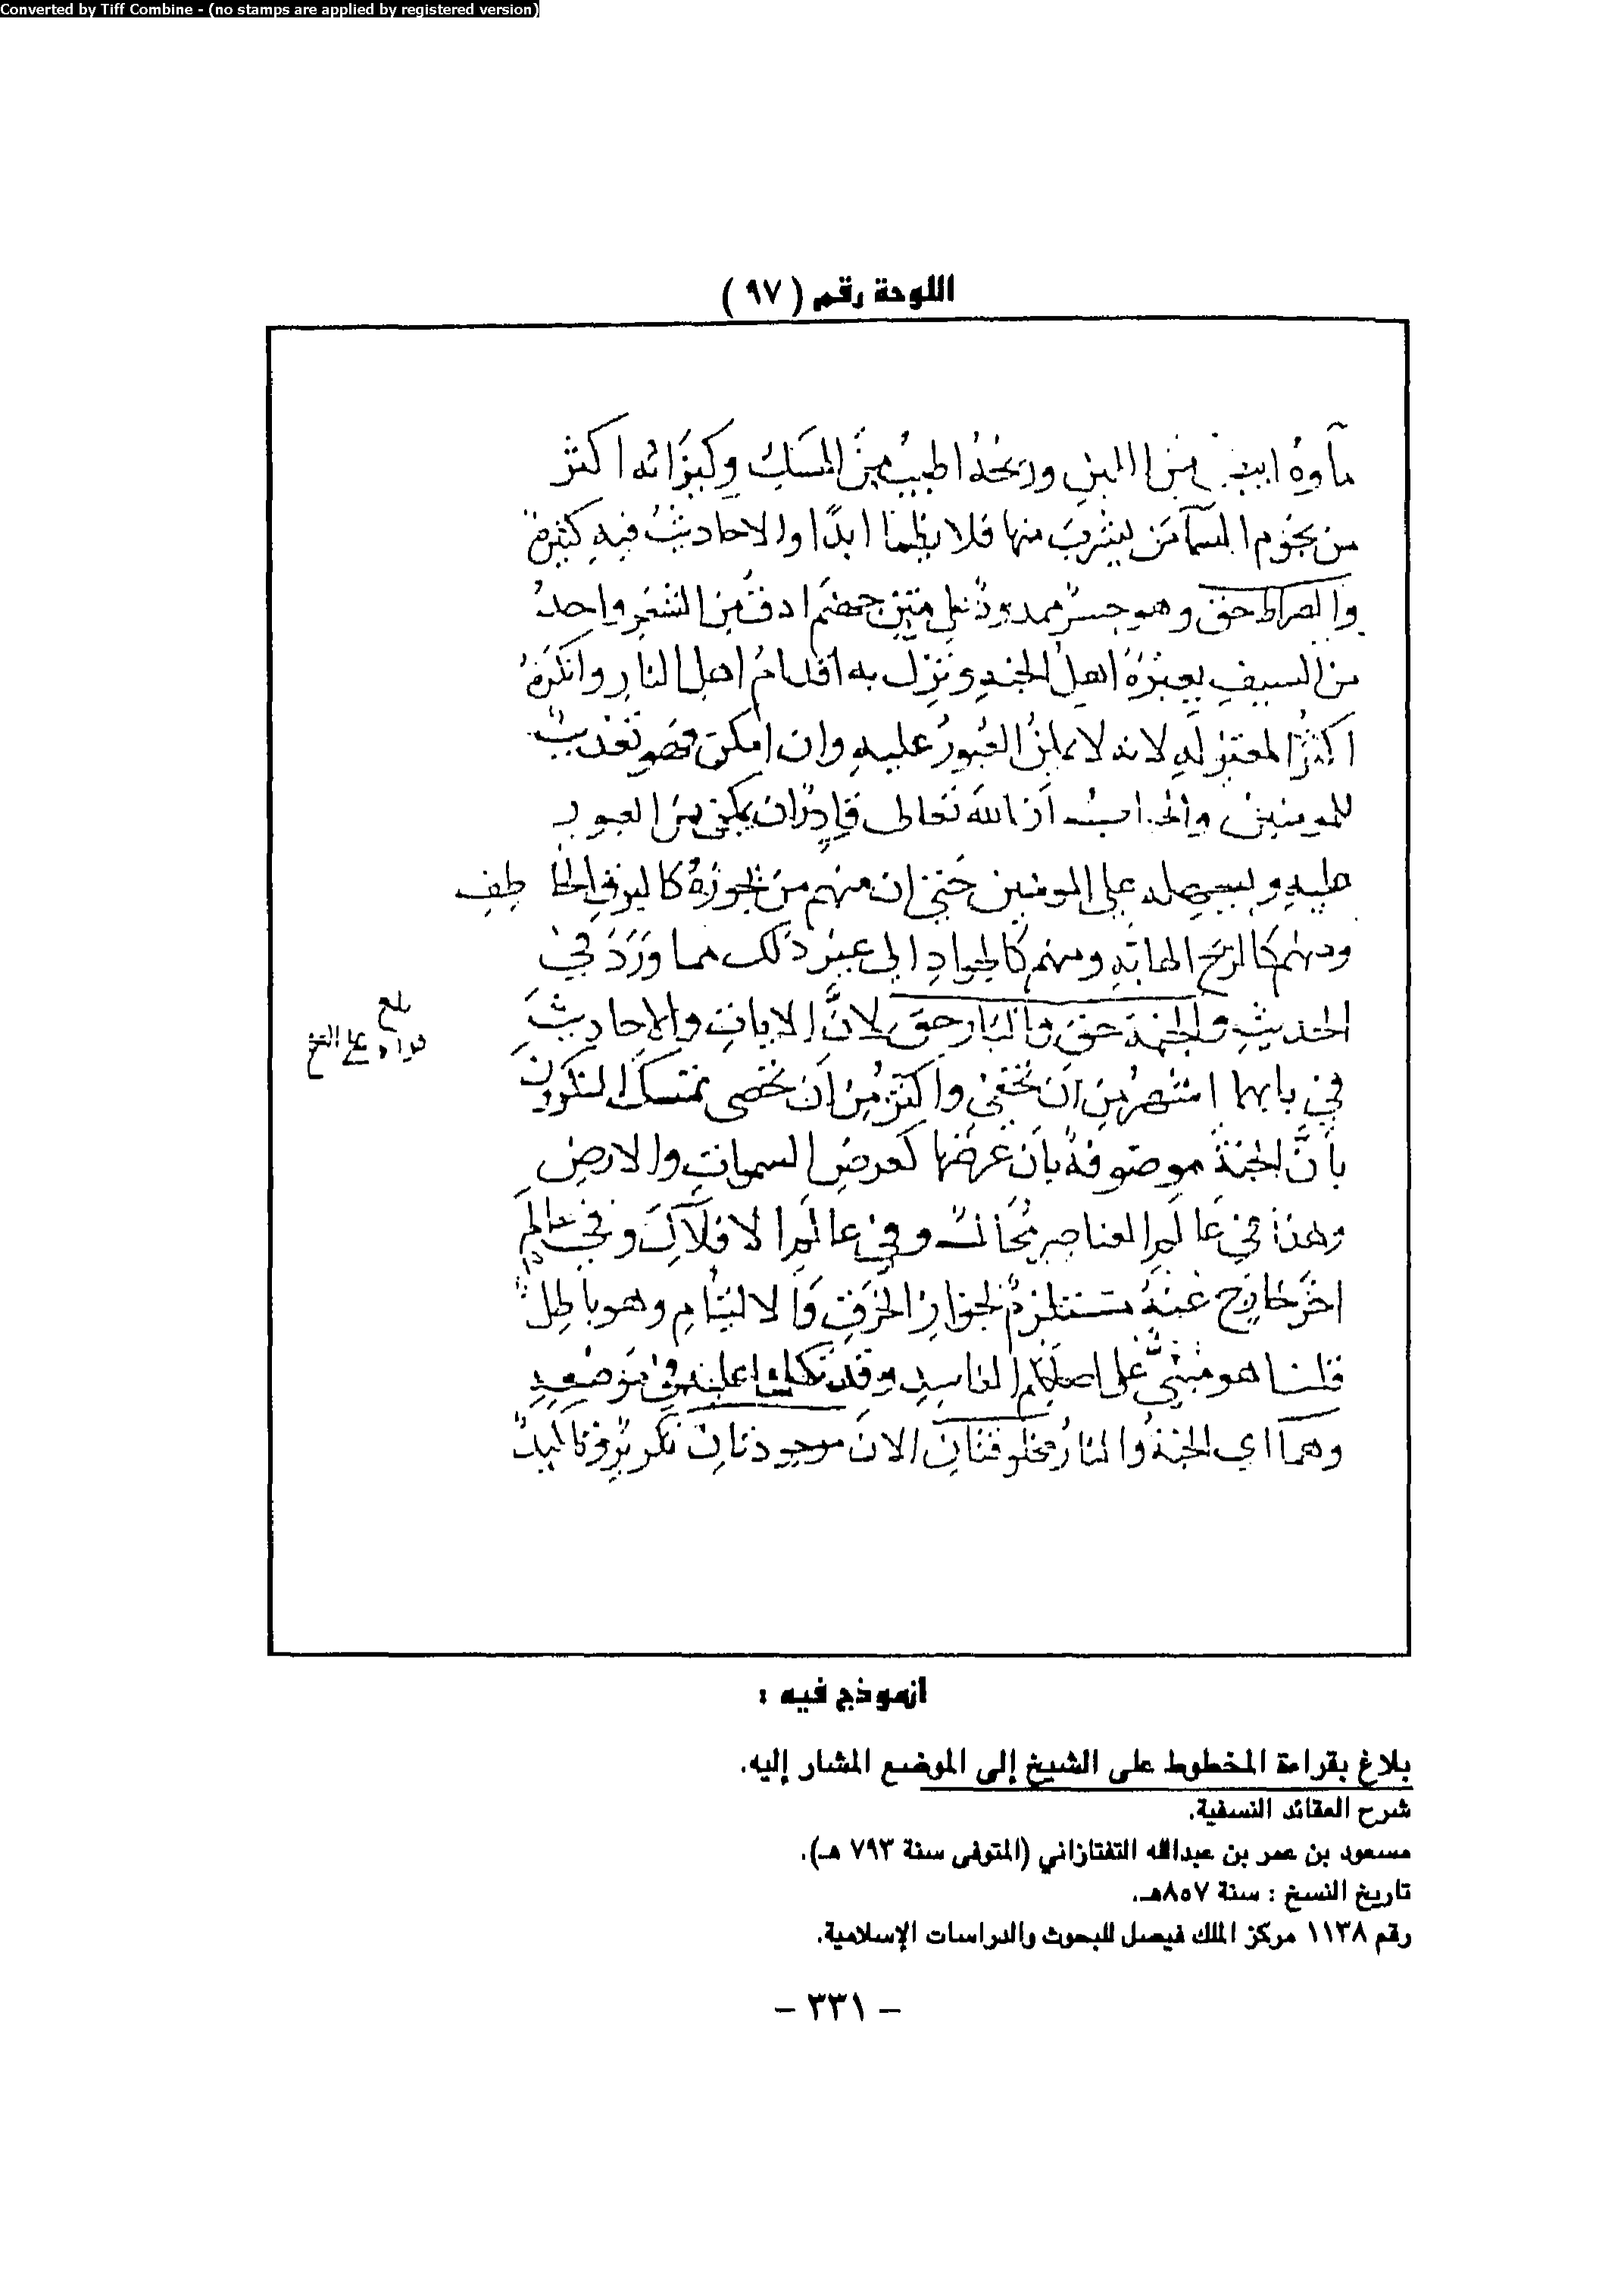 Converted by Tiff Combine - (no stamps are applied by registered version)
اللوحة رقم ( ٩٧ )
مآوه ابيض من اللبن وريحه اطيب من المسك وكيزانه اكثر
من نجوم السمآ من يشرب منها فلا يظما ابدًا والاحاديث فيه كثيرة
والصراط حق وهو جسر ممدود على متن جهنم ادق من الشعر واحد
من السيف يعبره اهل الجنة وتزل به اقدام اهل النار وانكره
اكثر المعتزله لانه لا يمكن العبور عليه وان امكن فهو تعذيب
للمومنين والجواب ان الله تعالى قادر ان يمكن من العبور
عليه ويسهله على المومنين حتى ان منهم من يجوزه كالبرق الخاطف
ومنهم كالريح الهابة ومنهم كالجواد الى غير ذلك مما ورد في
الحديث والجنة حق والنار حق لانَّ الايات والاحاديث
بلغ
قراءة على الشيخ
في بابهما اشهر من ان تخفى واكثر من ان تحصى تمسك المنكرون
بانَّ الجنة موصوفة بان عرضها كعرض السموات والارض
وهذا في عالم العناصر محال وفي عالم الافلاك وفي عالم
اخر خارج عنه مستلزم لجواز الخرق والالتيام وهو باطل
قلنا هو مبنيٌّ على اصلكم الفاسد وقد تكلمنا عليه في موضعه
وهما اي الجنة والنار مخلوقتان الان موجودتان تكرير وتاكيد
انموذج فيه :
بلاغ بقراءة المخطوط على الشيخ إلى الموضع المشار إليه.
شرح العقائد النسفية.
مسعود بن عمر بن عبدالله التفتازاني (المتوفى سنة ٧٩٣ هـ).
تاريخ النسخ : سنة ٨٥٧هـ.
رقم ١١٣٨ مركز الملك فيصل للبحوث والدراسات الإسلامية.
– ٣٣١ –